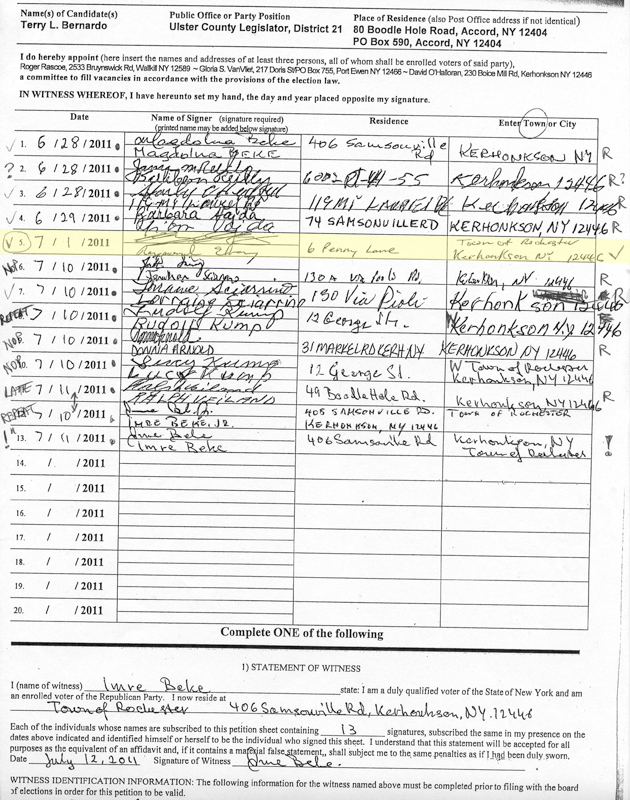 Name(s) of Candidate(s) Public Office or Party Position Place of Residence (also Post Office address if not identical)
Terry L. Bernardo Ulster County Legislator, District 21 80 Boodle Hole Road, Accord, NY 12404
PO Box 590, Accord, NY 12404
I do hereby appoint (here insert the names and addresses of at least three persons, all of whom shall be enrolled voters of said party),
Roger Rascoe, 2533 Bruynswick Rd, Wallkill NY 12589 ~ Gloria S. VanVliet, 217 Doris St/PO Box 755, Port Ewen NY 12466 ~ David O'Halloran, 230 Boice Mill Rd, Kerhonkson NY 12446
a committee to fill vacancies in accordance with the provisions of the election law.
IN WITNESS WHEREOF, I have hereunto set my hand, the day and year placed opposite my signature.
Date Name of Signer (signature required) Residence Enter Town or City
(printed name may be added below signature)
1. 6 / 28 / 2011 Magdolna Beke 406 Samsonville Rd
MAGDOLNA BEKE KERHONKSON NY R
? 2. 6 / 28 / 2011 Kerhonkson 12446 R?
3. 6 / 28 / 2011 Kerhonkson 12446 R
4. 6 / 29 / 2011 Barbara Vajda 74 SAMSONVILLE RD KERHONKSON, NY 12446 R
5. 7 / 1 / 2011 6 Penny Lane Town of Rochester
Kerhonkson NY 12446
NOP 6. 7 / 10 / 2011 130 A Kerhonkson, NY 12446
7. 7 / 10 / 2011 130 Via Kerhonkson 12446 R
Lorraine
REPEAT 7 / 10 / 2011 Rudolf Rump 12 George St. Kerhonkson N.Y 12446
RUDOLF RUMP
7 / 10 / 2011 DONNA ARNOLD 31 MARKEL RD KERH NY KERHONKSON NY 12446 R
7 / 10 / 2011 Lucy Rump 12 George St. Town of Rochester
Kerhonkson, NY 12446
LATE 7 / 11 / 2011 RALPH WEILAND 49 Boodle Hole Rd. Kerhonkson, NY 12446 R
REPEAT 7 / 10 / 2011 405 SAMSONVILLE RD. TOWN OF ROCHESTER
IMRE BEKE, JR. KERHONKSON, NY 12446
! 13. 7 / 11 / 2011 Imre Beke 406 Samsonville Rd Kerhonkson, NY !
Imre Beke Town of Rochester
14. / / 2011
15. / / 2011
16. / / 2011
17. / / 2011
18. / / 2011
19. / / 2011
20. / / 2011
Complete ONE of the following
1) STATEMENT OF WITNESS
I (name of witness) Imre Beke state: I am a duly qualified voter of the State of New York and am
an enrolled voter of the Republican Party. I now reside at
Town of Rochester 406 Samsonville Rd, Kerhonkson, NY. 12446
Each of the individuals whose names are subscribed to this petition sheet containing 13 signatures, subscribed the same in my presence on
the dates above indicated and identified himself or herself to be the individual who signed this sheet. I understand that this statement will be accepted for all
purposes as the equivalent of an affidavit and, if it contains a material false statement, shall subject me to the same penalties as if I had been duly sworn.
Date July 12, 2011 Signature of Witness Imre Beke
WITNESS IDENTIFICATION INFORMATION: The following information for the witness named above must be completed prior to filing with the board
of elections in order for this petition to be valid.